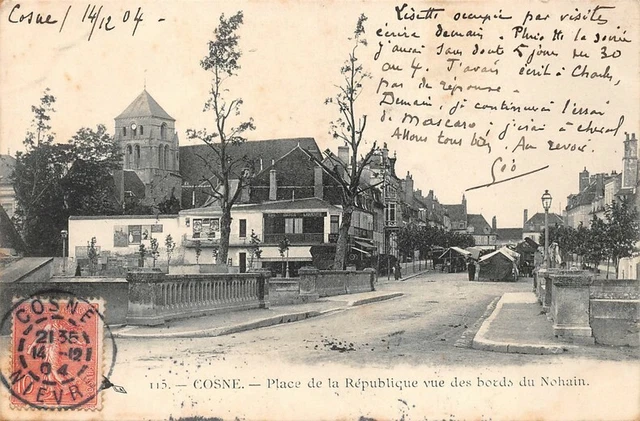 Cosne / 14/12 04 -
Lisette occupée par visites
écrira demain. - Pluie tte la soirée
j'aurai sans dout 5 jours du 30
au 4. J'avais écrit à Charly,
pas de réponse -
Demain, je continuerai l'essai
de Mascaro, j'irai à cheval
Allons tous bien. Au revoir.
COSNE
21 35
14 -12
04
NIEVRE
115. - COSNE. - Place de la République vue des bords du Nohain.